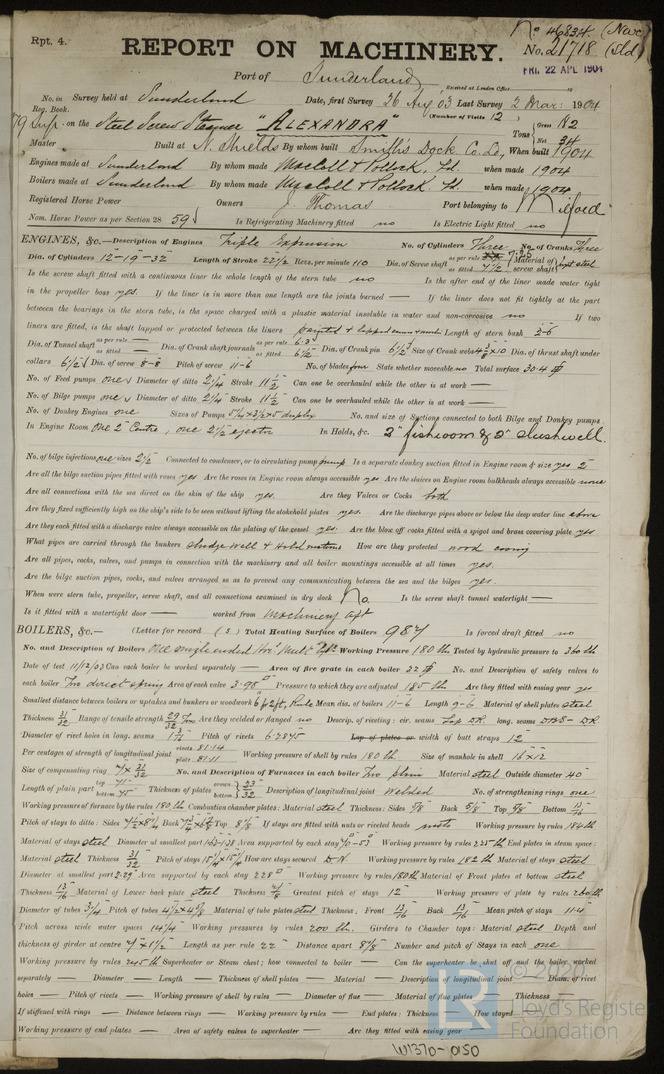 Rpt. 4.
No 46834 (New)
REPORT ON MACHINERY.
No. 21718 (Old)
FRI. 22 APL 1904
Port of Sunderland
Received at London Office
No. in Survey held at Sunderland Date, first Survey 26 Aug 03 Last Survey 2 Mar: 1904
Reg. Book. (Number of Visits 12)
79 Sup. on the Steel Screw Steamer "ALEXANDRA" Tons Gross 112 Net 34
Master Built at N. Shields By whom built Smith's Dock Co. Ld., When built 1904
Engines made at Sunderland By whom made Maccoll & Pollock, Ld. when made 1904
Boilers made at Sunderland By whom made Maccoll & Pollock Ld. when made 1904
Registered Horse Power Owners J. Thomas Port belonging to Milford
Nom. Horse Power as per Section 28 59 Is Refrigerating Machinery fitted no Is Electric Light fitted no
ENGINES, &c.—Description of Engines Triple Expansion No. of Cylinders Three No. of Cranks Three
Dia. of Cylinders 12-19-32 Length of Stroke 22½ Revs. per minute 110 Dia. of Screw shaft as per rule 7.26 as fitted 7½ Material of screw shaft
Is the screw shaft fitted with a continuous liner the whole length of the stern tube no Is the after end of the liner made water tight
in the propeller boss yes. If the liner is in more than one length are the joints burned — If the liner does not fit tightly at the part
between the bearings in the stern tube, is the space charged with a plastic material insoluble in water and non-corrosive no If two
liners are fitted, is the shaft lapped or protected between the liners painted & lapped Length of stern bush 2-6
Dia. of Tunnel shaft as per rule — as fitted — Dia. of Crank shaft journals as per rule 6.3 as fitted 6½ Dia. of Crank pin 6½ Size of Crank webs 4⅜×10 Dia. of thrust shaft under
collars 6½ Dia. of screw 8-8 Pitch of screw 11-6 No. of blades four State whether moveable no Total surface 30.4
No. of Feed pumps one Diameter of ditto 2¼ Stroke 11½ Can one be overhauled while the other is at work —
No. of Bilge pumps one Diameter of ditto 2¼ Stroke 11½ Can one be overhauled while the other is at work —
No. of Donkey Engines one Sizes of Pumps 5¼×3½×5 duplex No. and size of Suctions connected to both Bilge and Donkey pumps
In Engine Room One 2" Centre, one 2½ ejector In Holds, &c. 2" fishroom & 2" slushwell.
No. of bilge injections one sizes 2½ Connected to condenser, or to circulating pump pump Is a separate donkey suction fitted in Engine room & size yes 2
Are all the bilge suction pipes fitted with roses yes Are the roses in Engine room always accessible yes Are the sluices on Engine room bulkheads always accessible none
Are all connections with the sea direct on the skin of the ship yes. Are they Valves or Cocks both
Are they fixed sufficiently high on the ship's side to be seen without lifting the stokehold plates yes. Are the discharge pipes above or below the deep water line above
Are they each fitted with a discharge valve always accessible on the plating of the vessel yes Are the blow off cocks fitted with a spigot and brass covering plate yes
What pipes are carried through the bunkers sludge well & Hold How are they protected wood casing
Are all pipes, cocks, valves, and pumps in connection with the machinery and all boiler mountings accessible at all times yes.
Are the bilge suction pipes, cocks, and valves arranged so as to prevent any communication between the sea and the bilges yes.
When were stern tube, propeller, screw shaft, and all connections examined in dry dock No. Is the screw shaft tunnel watertight —
Is it fitted with a watertight door — worked from Machinery aft
BOILERS, &c.— (Letter for record (S) Total Heating Surface of Boilers 987 Is forced draft fitted no
No. and Description of Boilers One single ended Working Pressure 180 lb Tested by hydraulic pressure to 360 lb
Date of test 11/12/03 Can each boiler be worked separately — Area of fire grate in each boiler 32 No. and Description of safety valves to
each boiler Two direct spring Area of each valve 3.98 Pressure to which they are adjusted 185 lb Are they fitted with easing gear yes
Smallest distance between boilers or uptakes and bunkers or woodwork Mean dia. of boilers 11-6 Length 9-6 Material of shell plates steel
Thickness 31/32 Range of tensile strength Are they welded or flanged no Descrip. of riveting: cir. seams Lap DR. long. seams DBS- DR
Diameter of rivet holes in long. seams Pitch of rivets 6.7875 Lap of plates or width of butt straps 12
Per centages of strength of longitudinal joint rivets 81.14 plate 81.11 Working pressure of shell by rules 180 lb Size of manhole in shell 16×12
Size of compensating ring 7×31/32 No. and Description of Furnaces in each boiler Two plain Material steel Outside diameter 40
Length of plain part top bottom Thickness of plates crown bottom 23/32 Description of longitudinal joint Welded No. of strengthening rings one
Working pressure of furnace by the rules 180 lb Combustion chamber plates: Material steel Thickness: Sides 9/8 Back 5/8 Top 9/8 Bottom 13/16
Pitch of stays to ditto: Sides Back Top 8⅞ If stays are fitted with nuts or riveted heads nuts Working pressure by rules 184 lb
Material of stays steel Diameter at smallest part Area supported by each stay Working pressure by rules 225 lb End plates in steam space:
Material steel Thickness 31/32 Pitch of stays How are stays secured D.N. Working pressure by rules 182 lb Material of stays steel
Diameter at smallest part 2.29 Area supported by each stay 228 Working pressure by rules 180 lb Material of Front plates at bottom steel
Thickness 13/16 Material of Lower back plate steel Thickness Greatest pitch of stays 12 Working pressure of plate by rules 200 lb
Diameter of tubes 3¼ Pitch of tubes 4½×4⅝ Material of tube plates steel Thickness: Front 13/16 Back 13/16 Mean pitch of stays 11.4
Pitch across wide water spaces 14¼ Working pressures by rules 200 lb. Girders to Chamber tops: Material steel Depth and
thickness of girder at centre 7×1½ Length as per rule 22 Distance apart 8⅞ Number and pitch of Stays in each one
Working pressure by rules 245 lb Superheater or Steam chest; how connected to boiler — Can the superheater be shut off and the boiler worked
separately — Diameter — Length — Thickness of shell plates — Material — Description of longitudinal joint — Diam. of rivet
holes — Pitch of rivets — Working pressure of shell by rules — Diameter of flue — Material of flue plates — Thickness —
If stiffened with rings — Distance between rings — Working pressure by rules — End plates: Thickness — How stayed —
Working pressure of end plates — Area of safety valves to superheater — Are they fitted with easing gear —
© 2020
Lloyd's Register
Foundation
W1370-0150